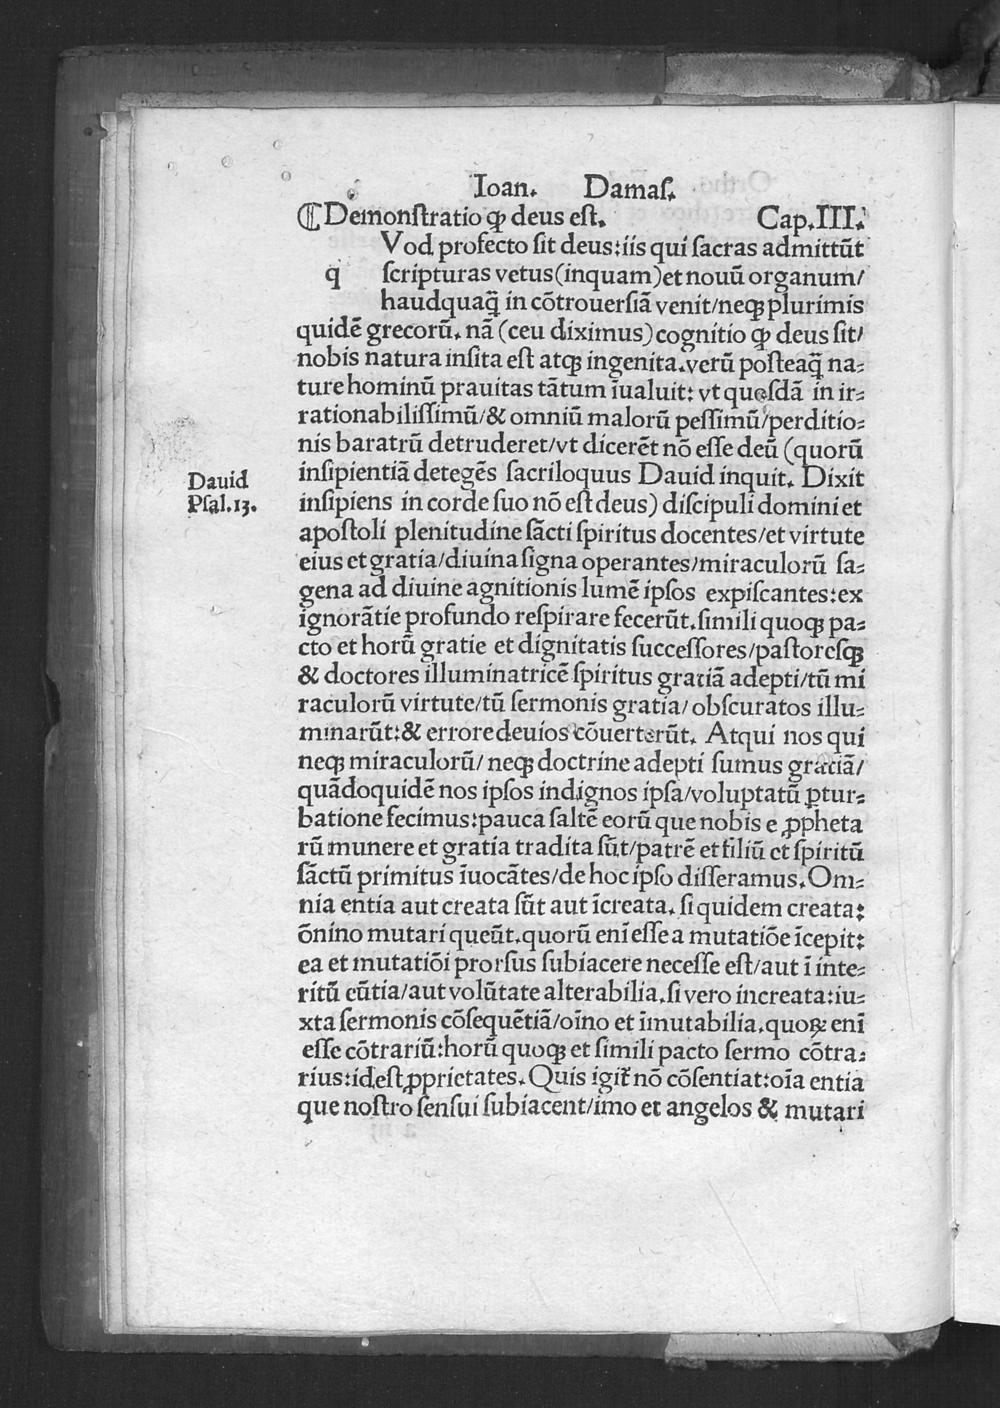 Ioan. Damas.
⁋Demonſtratio ꝙ deus eſt. Cap.III.
Vod profecto ſit deus:iis qui ſacras admittūt
q ſcripturas vetus(inquam)et nouū organum/
haudquaq̄ in cōtrouerſiā venit/neqꝫ plurimis
quidē grecorū. nā (ceu diximus) cognitio ꝙ deus ſit/
nobis natura inſita eſt atqꝫ ingenita.verū poſteaq̄ na⸗
ture hominū prauitas tātum īualuit: vt quoſdā in ir⸗
rationabiliſſimū/& omniū malorū peſſimū/perditio⸗
nis baratrū detruderet/vt dicerēt nō eſſe deū (quorū
inſipientiā detegēs ſacriloquus Dauid inquit. Dixit
Dauid
Pſal.13.
inſipiens in corde ſuo nō eſt deus) diſcipuli domini et
apoſtoli plenitudine ſācti ſpiritus docentes/et virtute
eius et gratia/diuina ſigna operantes/miraculorū ſa⸗
gena ad diuine agnitionis lumē ipſos expiſcantes:ex
ignorātie profundo reſpirare fecerūt.ſimili quoqꝫ pa⸗
cto et horū gratie et dignitatis ſucceſſores/paſtoreſqꝫ
& doctores illuminatricē ſpiritus gratiā adepti/tū mi
raculorū virtute/tū ſermonis gratia/obſcuratos illu⸗
minarūt:& errore deuios cōuerterūt. Atqui nos qui
neqꝫ miraculorū/ neqꝫ doctrine adepti ſumus gratiā/
quādoquidē nos ipſos indignos ipſa/voluptatū ꝑtur⸗
batione fecimus:pauca ſaltē eorū que nobis e ꝓpheta
rū munere et gratia tradita ſūt/patrē et filiū et ſpiritū
ſāctū primitus īuocātes/de hoc ipſo diſſeramus.Om⸗
nia entia aut creata ſūt aut īcreata. ſi quidem creata:
ōnino mutari queūt.quorū enī eſſe a mutatiōe īcepit:
ea et mutatiōi prorſus ſubiacere neceſſe eſt/aut ī inte⸗
ritū eūtia/aut volūtate alterabilia.ſi vero increata:iu⸗
xta ſermonis cōſequētiā/oīno et īmutabilia.quoꝝ enī
eſſe cōtrariū:horū quoqꝫ et ſimili pacto ſermo cōtra⸗
rius:ideſt ꝓprietates. Quis igit̄ nō cōſentiat:oīa entia
que noſtro ſenſui ſubiacent/imo et angelos & mutari